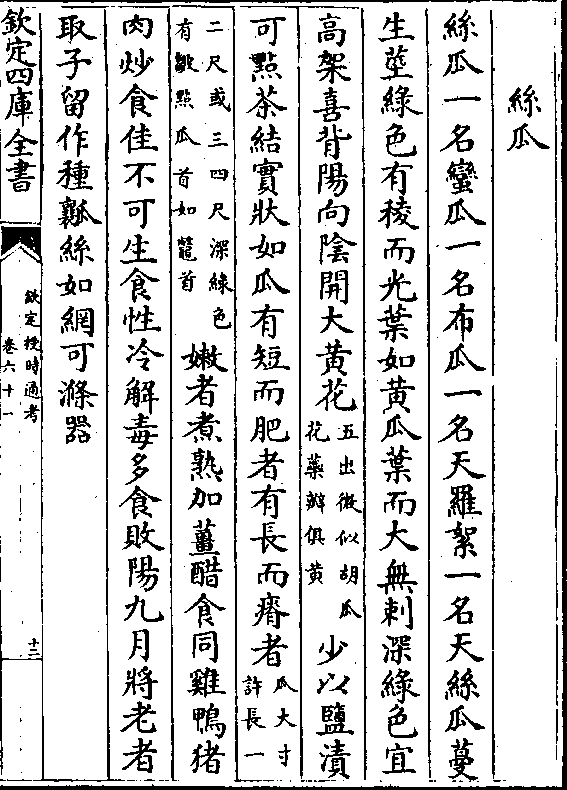 絲瓜
絲瓜一名蠻瓜一名布瓜一名天羅絮一名天絲瓜蔓
生莖綠色有稜而光葉如黃瓜葉而大無刺深綠色宜
高架喜背陽向陰開大黃花五出微似胡瓜花蘂瓣俱黃少以鹽漬
可點茶結實狀如瓜有短而肥者有長而瘠者瓜大寸許長一
二尺或三四尺深綠色有皺點瓜首如鼈首嫩者煮熟加薑醋食同雞鴨猪
肉炒食佳不可生食性冷解毒多食敗陽九月將老者
取子留作種瓤絲如網可滌器
欽定四庫全書
欽定授時通考
卷六十一
十三